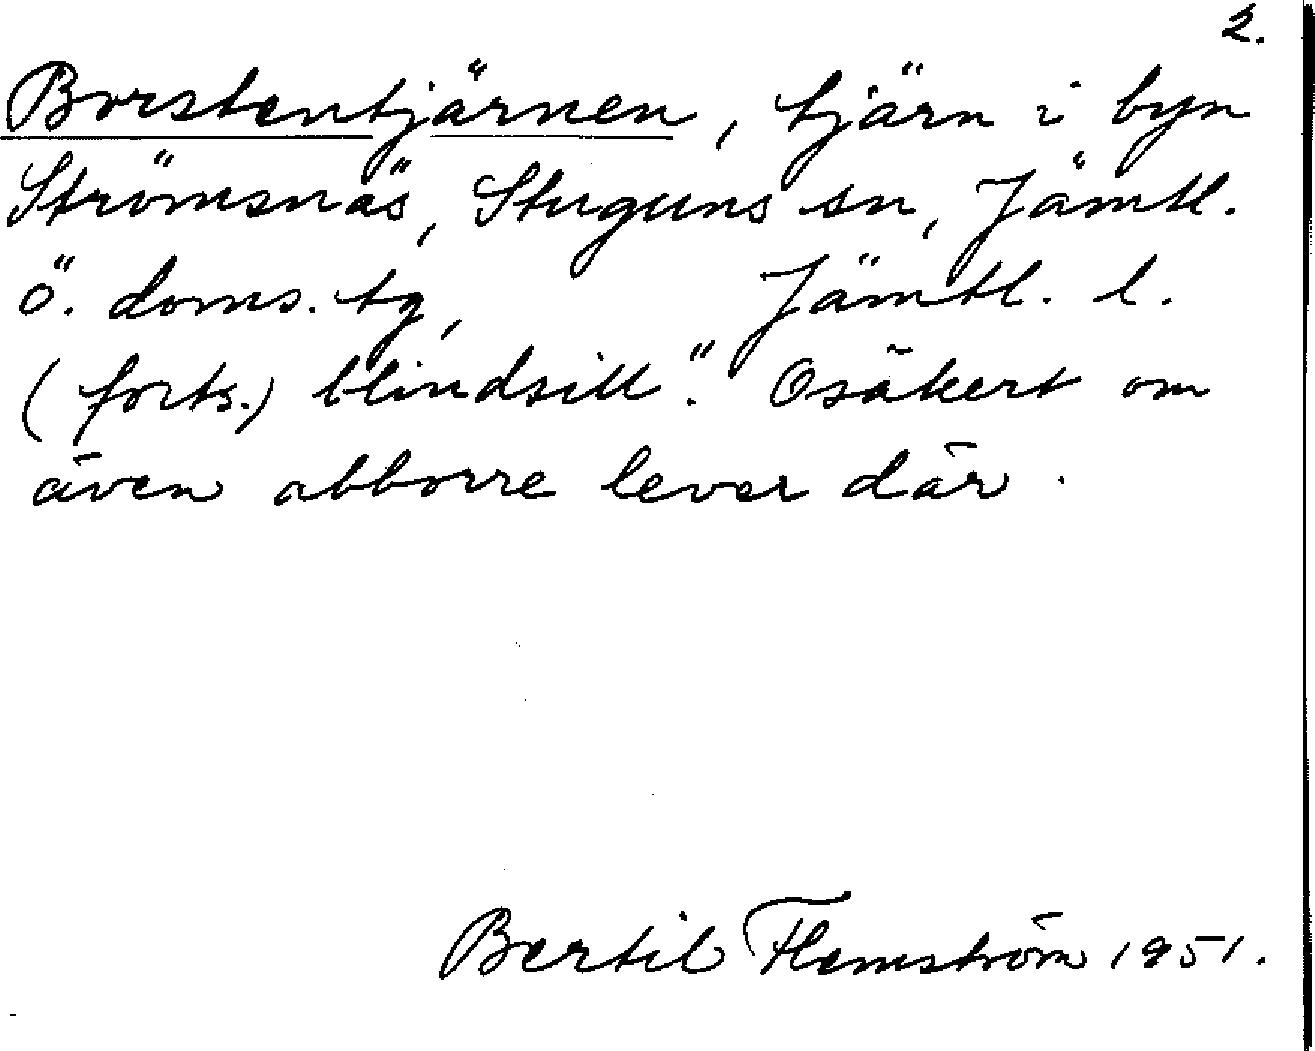 2.
Borstentjärnen, tjärn i byn
Strömsnäs, Stuguns sn, Jämtl.
ö. doms. tg, Jämtl. l.
(forts.) blindsill". Osäkert om
även abborre lever där.
Bertil Flemström 1951.